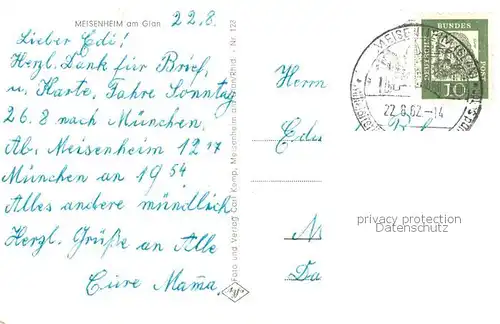 MEISENHEIM am Glan
22.8.
Lieber Edi!
Herzl. Dank für Brief,
u. Karte, Fahre Sonntag
26.8 nach München,
Ab. Meisenheim 12 17
München an 19 54
Alles andere mündlich
Herzl. Grüße an Alle
Eure Mama.
Foto und Verlag Carl Kemp, Meisenheim am Glan/Rhld. - Nr. 122
Herrn
Edu
M
Da
DEUTSCHE
BUNDES
POST
10
MEISENHEIM
22.8.62.-14
privacy protection
Datenschutz